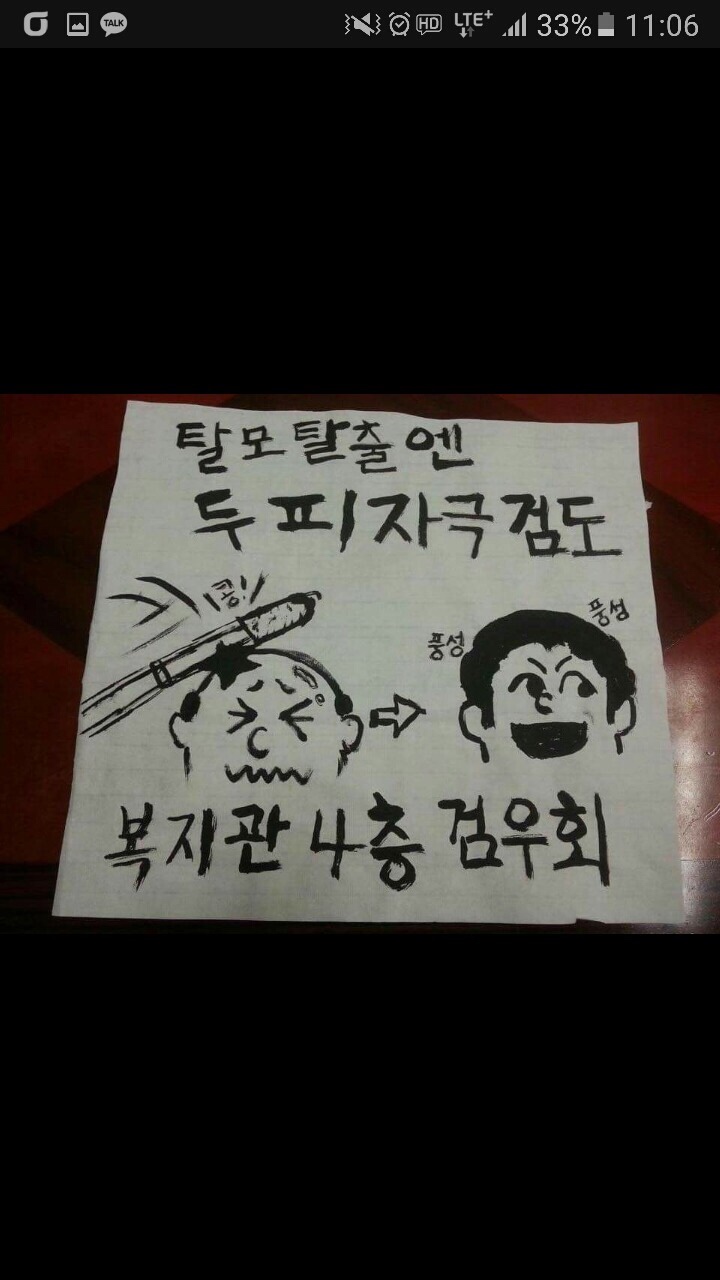 TALK HD LTE+ 33% 11:06
탈모탈출엔
두피자극검도
퐁!
풍성
풍성
복지관 4층 검우회